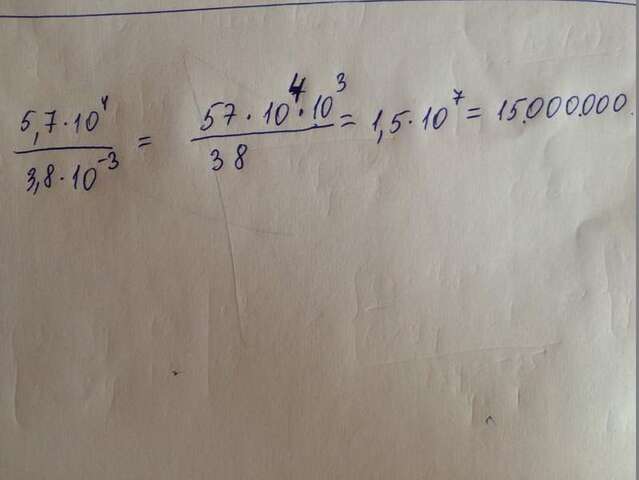 5,7·10⁴ / 3,8·10⁻³ = 57·10⁴·10³ / 38 = 1,5·10⁷ = 15.000.000.